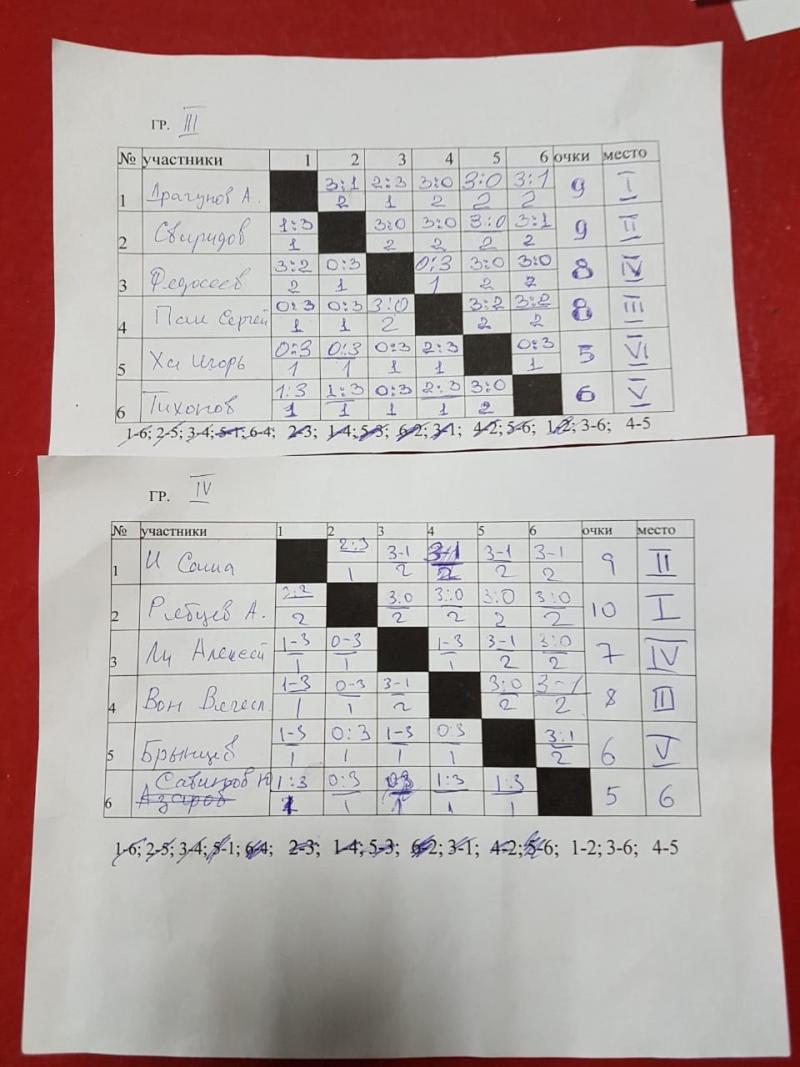 ГР. III
№ участники 1 2 3 4 5 6 очки место
1 Драгунов А. 3:1 2:3 3:0 3:0 3:1 9 I
2 1 2 2 2
2 Свиридов 1:3 3:0 3:0 3:0 3:1 9 II
1 2 2 2 2
3 Федосеев 3:2 0:3 0:3 3:0 3:0 8 IV
2 1 1 2 2
4 Пак Сергей 0:3 0:3 3:0 3:2 3:2 8 III
1 1 2 2 2
5 Хан Игорь 0:3 0:3 0:3 2:3 0:3 5 VI
1 1 1 1 1
6 Тихонов 1:3 1:3 0:3 2:3 3:0 6 V
1 1 1 1 2
1-6; 2-5; 3-4; 5-1; 6-4; 2-3; 1-4; 5-3; 6-2; 3-1; 4-2; 5-6; 1-2; 3-6; 4-5
ГР. IV
№ участники 1 2 3 4 5 6 очки место
1 И Саша 2:3 3-1 3-1 3-1 3-1 9 II
1 2 2 2 2
2 Рябцев А. 3:2 3:0 3:0 3:0 3:0 10 I
2 2 2 2 2
3 Ли Алексей 1-3 0-3 1-3 3-1 3:0 7 IV
1 1 1 2 2
4 Вон Вячесл. 1-3 0-3 3-1 3:0 3-1 8 III
1 1 2 2 2
5 Брынцев 1-3 0:3 1-3 0:3 3:1 6 V
1 1 1 1 2
6 Савинров Ю 1:3 0:3 0:3 1:3 1:3 5 6
Азаров 1 1 1 1 1
1-6; 2-5; 3-4; 5-1; 6-4; 2-3; 1-4; 5-3; 6-2; 3-1; 4-2; 5-6; 1-2; 3-6; 4-5